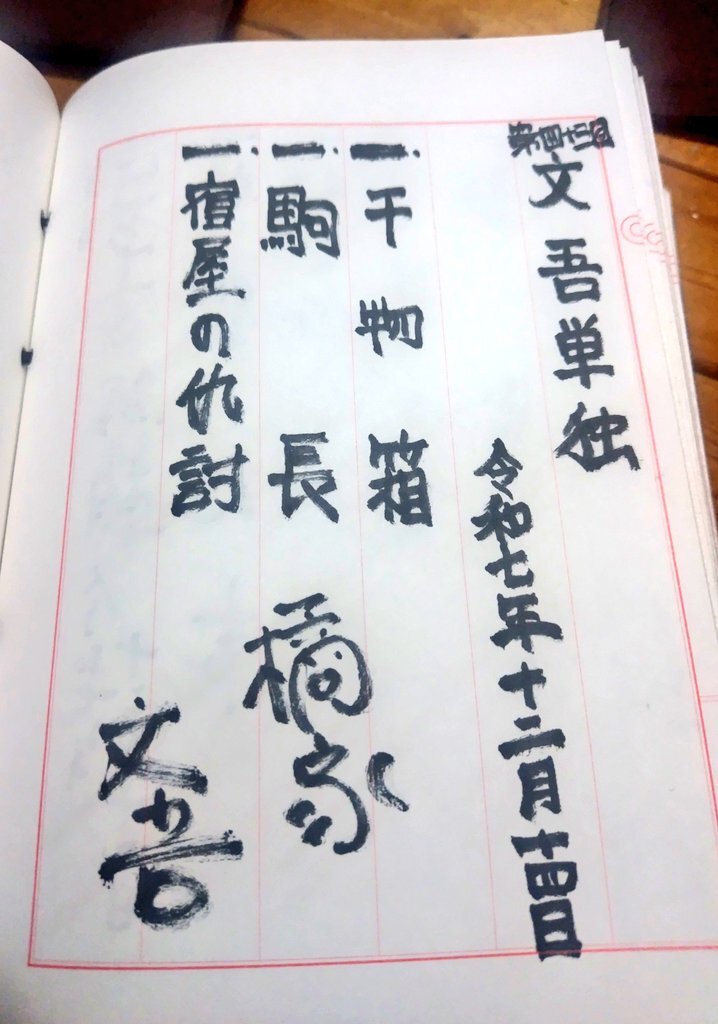 第四十三回
文吾単独
令和七年十二月十四日
一.干物箱
一.駒長
一.宿屋の仇討
橘家
文吾